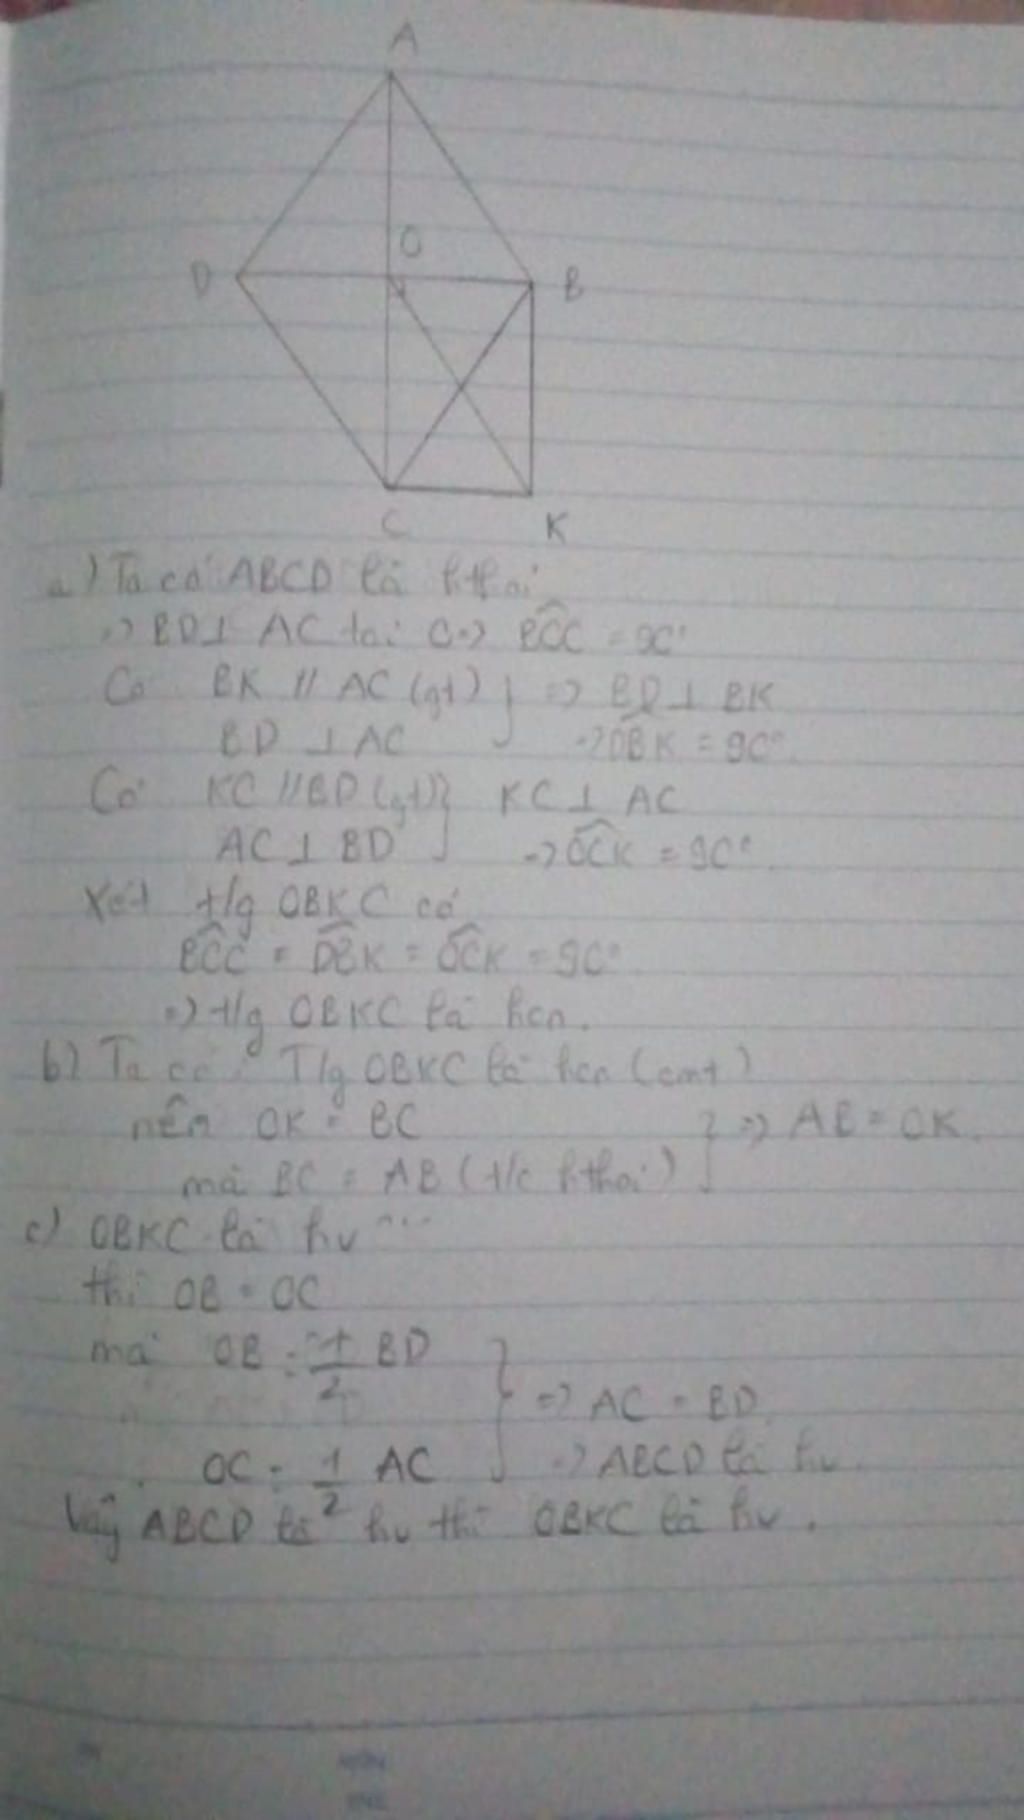 A
O
D
B
C
K
a) Ta có ABCD là h.thoi
=> BD ⊥ AC tại O => BÔC = 90°
Có BK // AC (gt) } => BD ⊥ BK
BD ⊥ AC => OBK = 90°
Có KC // BD (gt) } KC ⊥ AC
AC ⊥ BD => OCK = 90°
Xét t/g OBKC có
BOC = OBK = OCK = 90°
=> t/g OBKC là hcn.
b) Ta có: T/g OBKC là hcn (cmt)
nên OK = BC } => AB = OK.
mà BC = AB (t/c h.thoi)
c) OBKC là hv ...
thì OB = OC
mà OB = 1/2 BD
} => AC = BD
OC = 1/2 AC => ABCD là hv
Vậy ABCD là hv thì OBKC là hv.